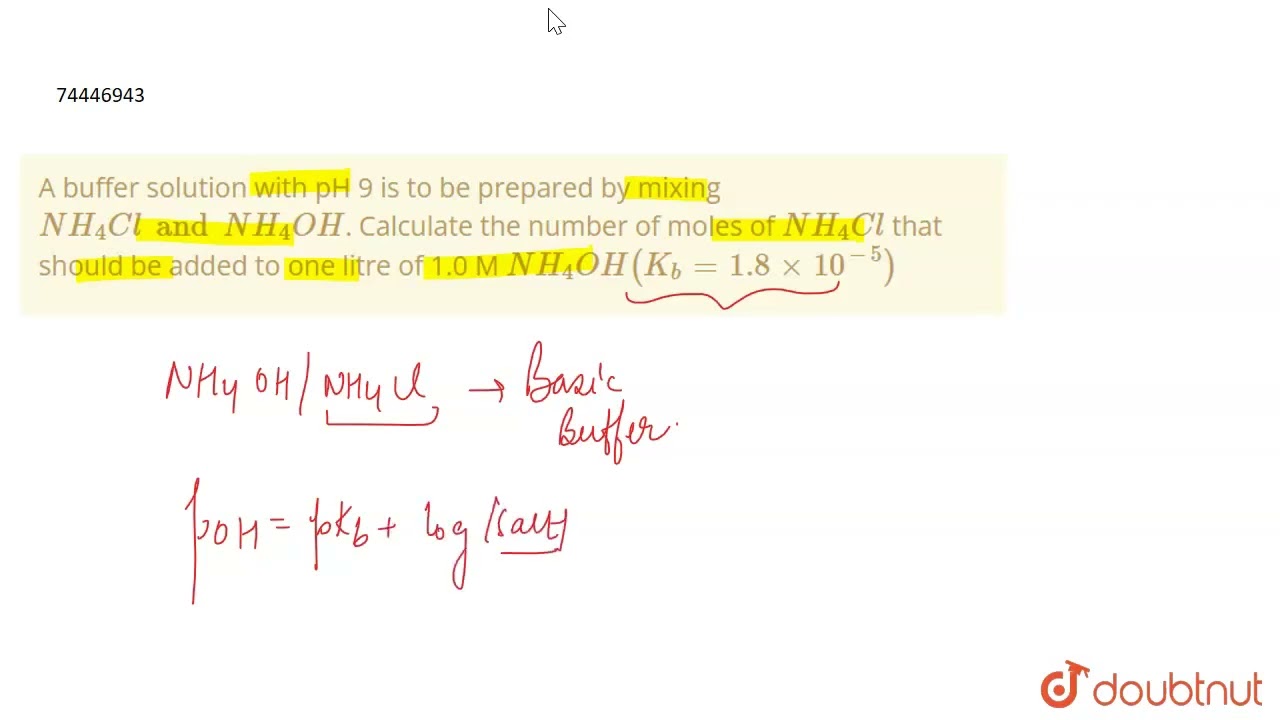 74446943
A buffer solution with pH 9 is to be prepared by mixing
NH₄Cl and NH₄OH. Calculate the number of moles of NH₄Cl that
should be added to one litre of 1.0 M NH₄OH(K_b = 1.8 × 10⁻⁵)
NH4 OH / NH4 Cl → Basic
Buffer.
pOH = pKb + log [Salt]
doubtnut